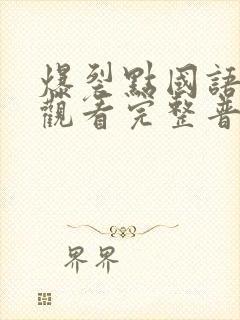 爆裂點國語
觀看完整普
界界